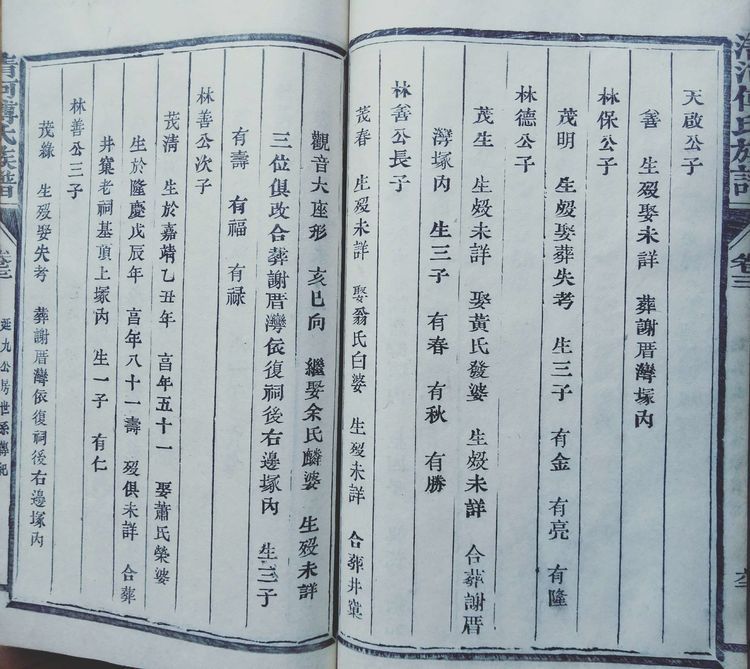 清河傅氏族譜
卷三
天啟公子
善 生歿娶未詳 葬謝厝灣塚內
林保公子
茂明 生歿娶葬失考 生三子 有金 有亮 有隆
林德公子
茂生 生歿未詳 娶黃氏發婆 生歿未詳 合葬謝厝
灣塚內 生三子 有春 有秋 有勝
林善公長子
茂春 生歿未詳 娶翁氏白婆 生歿未詳 合葬井窠
觀音大座形 亥巳向 繼娶余氏麟婆 生歿未詳
三位俱改合葬謝厝灣依復祠後右邊塚內 生三子
有壽 有福 有禄
林善公次子
茂清 生於嘉靖乙丑年 享年五十一 娶蕭氏榮婆
生於隆慶戊辰年 享年八十一壽 歿俱未詳 合葬
井窠老祠基頂上塚內 生一子 有仁
林善公三子
茂綠 生歿娶失考 葬謝厝灣依復祠後右邊塚內
清河傅氏族譜
卷三
延九公房世系傳紀